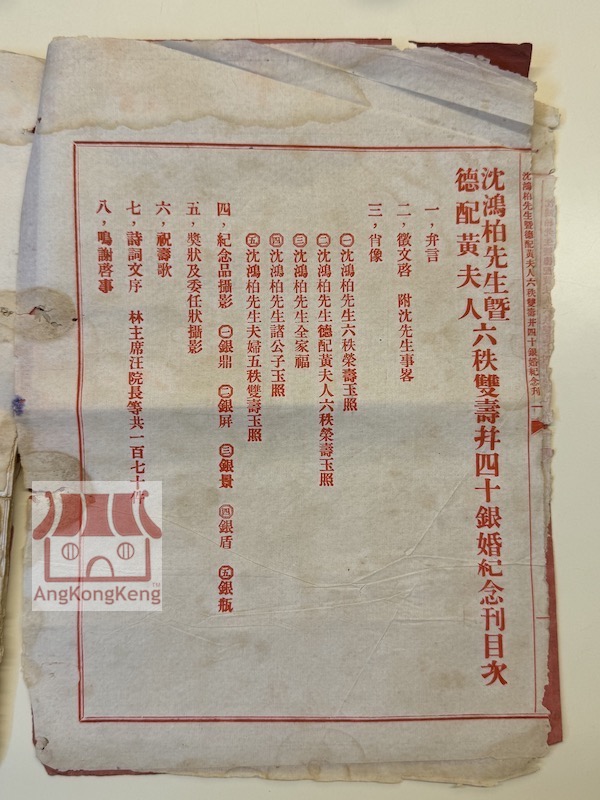 沈鴻柏先生暨德配黃夫人六秩雙壽并四十銀婚紀念刊 一
沈鴻柏先生暨
德配黃夫人
六秩雙壽并四十銀婚紀念刊目次
一，弁言
二，徵文啓 附沈先生事畧
三，肖像
㊀沈鴻柏先生六秩榮壽玉照
㊁沈鴻柏先生德配黃夫人六秩榮壽玉照
㊂沈鴻柏先生全家福
㊃沈鴻柏先生諸公子玉照
㊄沈鴻柏先生夫婦五秩雙壽玉照
四，紀念品攝影 ㊀銀鼎 ㊁銀屏 ㊂銀景 ㊃銀盾 ㊄銀瓶
五，獎狀及委任狀攝影
六，祝壽歌
七，詩詞文序 林主席汪院長等共一百七十
八，鳴謝啓事
AngKongKeng™